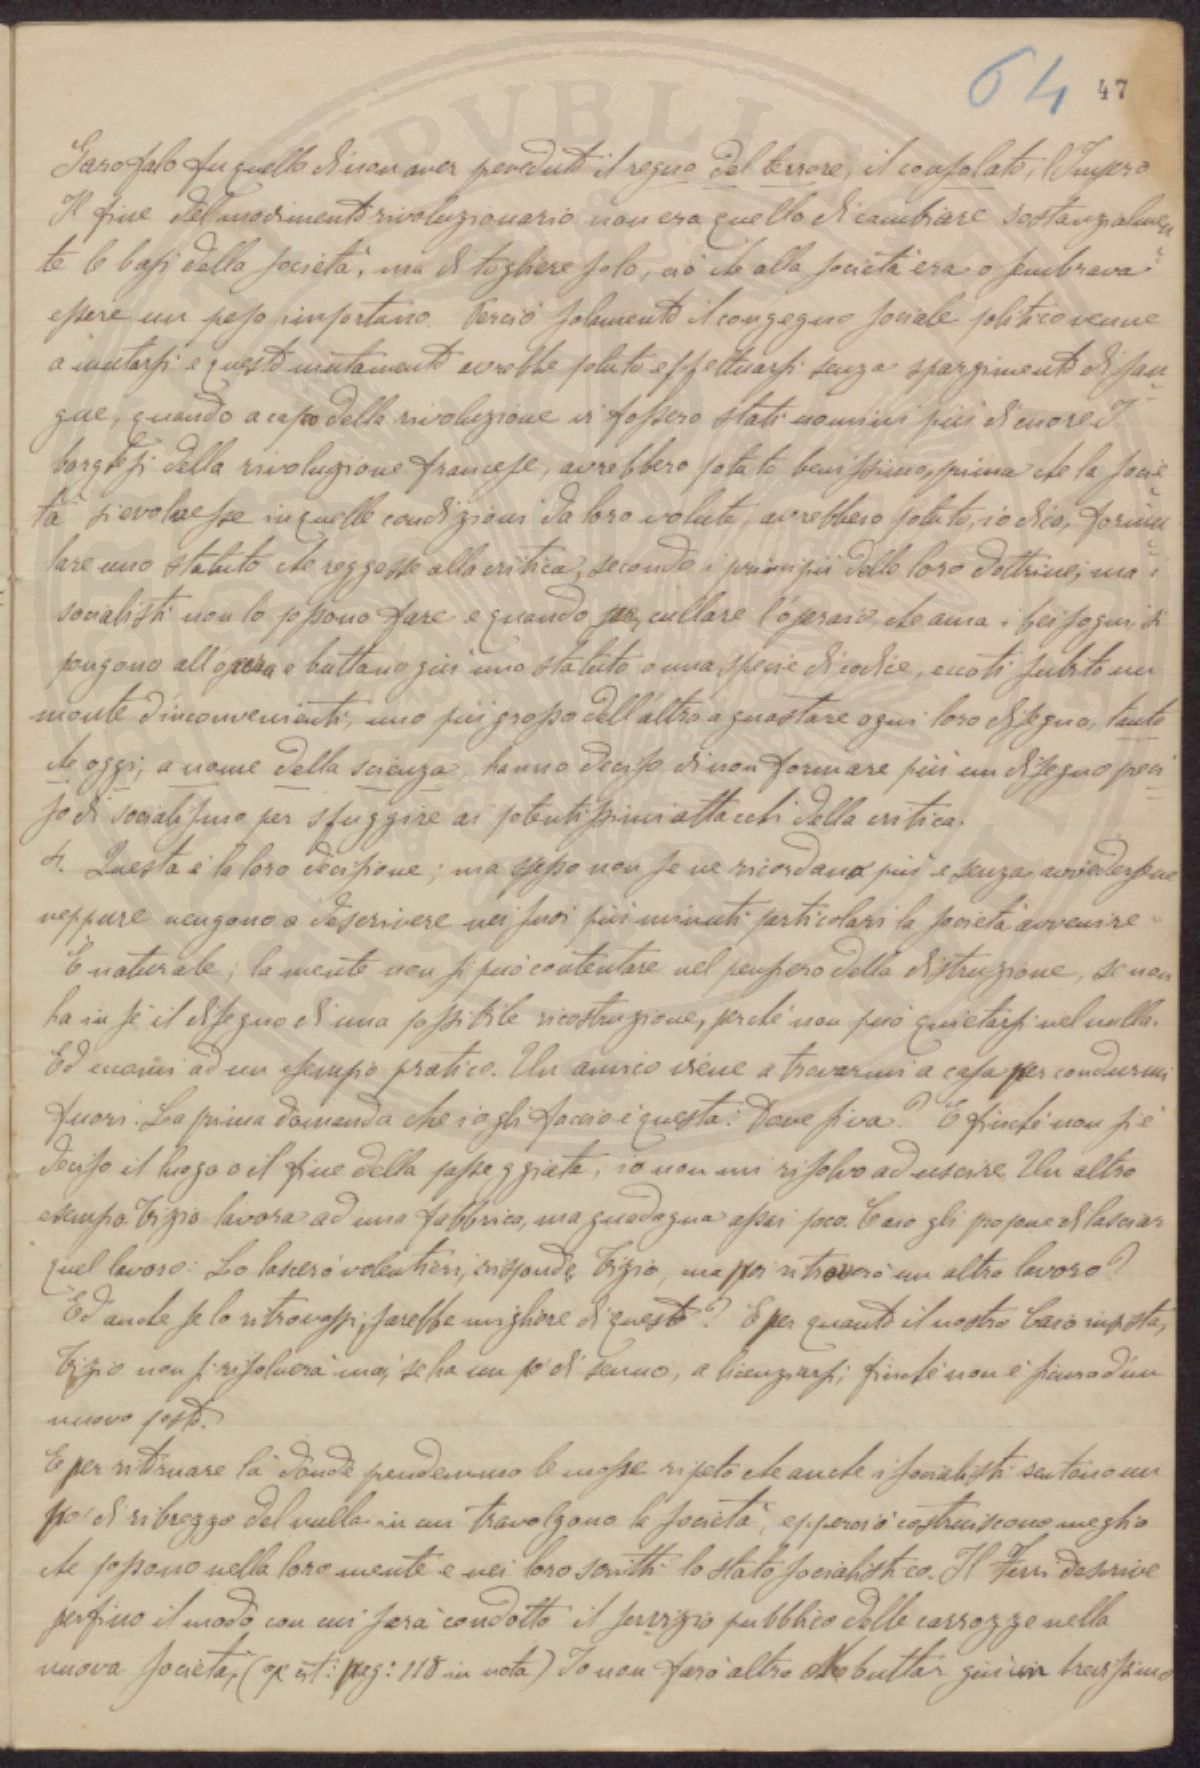 64 47
Garofalo fu quello di non aver preveduto il regno del terrore, il consolato, l'Impero
Il fine del movimento rivoluzionario non era quello di cambiare sostanzialmen
te le basi della società, ma di togliere solo, ciò che alla società era o sembrava
essere un peso importuno. Perciò solamente il congegno sociale politico venne
a mutarsi e questo mutamento avrebbe potuto effettuarsi senza spargimento di san
gue, quando a capo della rivoluzione vi fossero stati uomini più di cuore. I
borghesi della rivoluzione francese, avrebbero potuto benissimo, prima che la socie
tà si evolvesse in quelle condizioni da loro volute, avrebbero potuto, io dico, formu
lare uno statuto che reggesse alla critica, secondo i principii delle loro dottrine; ma i
socialisti non lo possono fare e quando per cullare l'operaio, che ama i bei sogni, si
pongono all'opera e buttano giù uno statuto o una specie di codice, eccoti subito un
monte d'inconvenienti, uno più grosso dell'altro a guastare ogni loro disegno, tanto
che oggi, a nome della scienza, hanno deciso di non formare più un disegno preci
so di socialismo per sfuggire ai potentissimi attacchi della critica.
4. Questa è la loro decisione; ma spesso non se ne ricordano più e senza avvedersene
neppure vengono a descrivere nei suoi più minuti particolari la società avvenire.
È naturale; la mente non si può contentare nel pensiero della distruzione, se non
ha in sé il disegno di una possibile ricostruzione, perché non può quietarsi nel nulla.
Ed eccomi ad un esempio pratico. Un amico viene a trovarmi a casa per condurmi
fuori. La prima domanda che io gli faccio è questa: Dove si va? E finché non si è
deciso il luogo o il fine della passeggiata, io non mi risolvo ad uscire. Un altro
esempio. Tizio lavora ad una fabbrica, ma guadagna assai poco. Caio gli propone di lasciar
quel lavoro. Lo lascerò volentieri, risponde Tizio, ma poi ritroverò un altro lavoro?
Ed anche se lo ritrovassi, sarebbe migliore di questo? E per quanto il nostro Caio insista,
Tizio non si risolverà mai, se ha un po' di senno, a licenziarsi, finché non è sicuro d'un
nuovo posto.
E per ritornare là donde prendemmo le mosse ripeto che anche i socialisti sentono un
po' di ribrezzo del nulla in cui travolgono la società, epperciò costruiscono meglio
che possono nella loro mente e nei loro scritti lo stato socialistico. Il Ferri descrive
perfino il modo con cui sarà condotto il servizio pubblico delle carrozze nella
nuova società, (op. cit: pag: 118 in nota) Io non farò altro che buttar giù un brevissimo